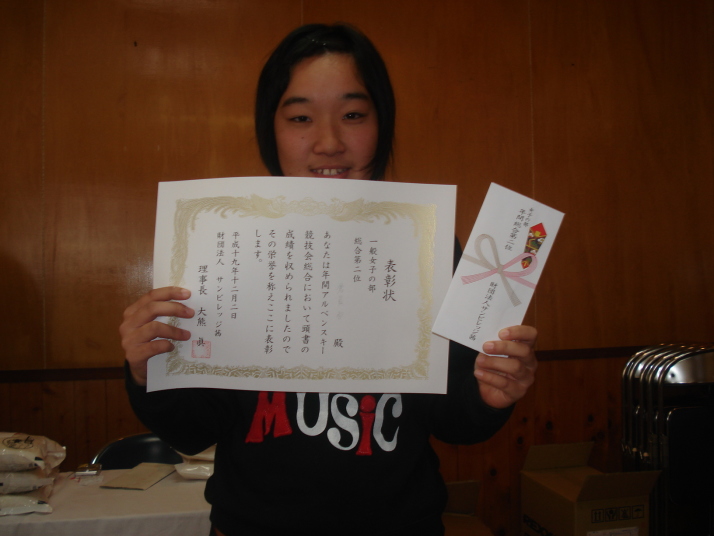 表彰状
一般女子の部
総合第二位
殿
あなたは年間アルペンスキー
競技会総合において頭書の
成績を収められましたので
その栄誉を称えここに表彰
します。
平成十九年十二月二日
財団法人 サンビレッジ茜
理事長 大熊 眞
女子の部
年間総合第二位
財団法人サンビレッジ茜
MUSiC